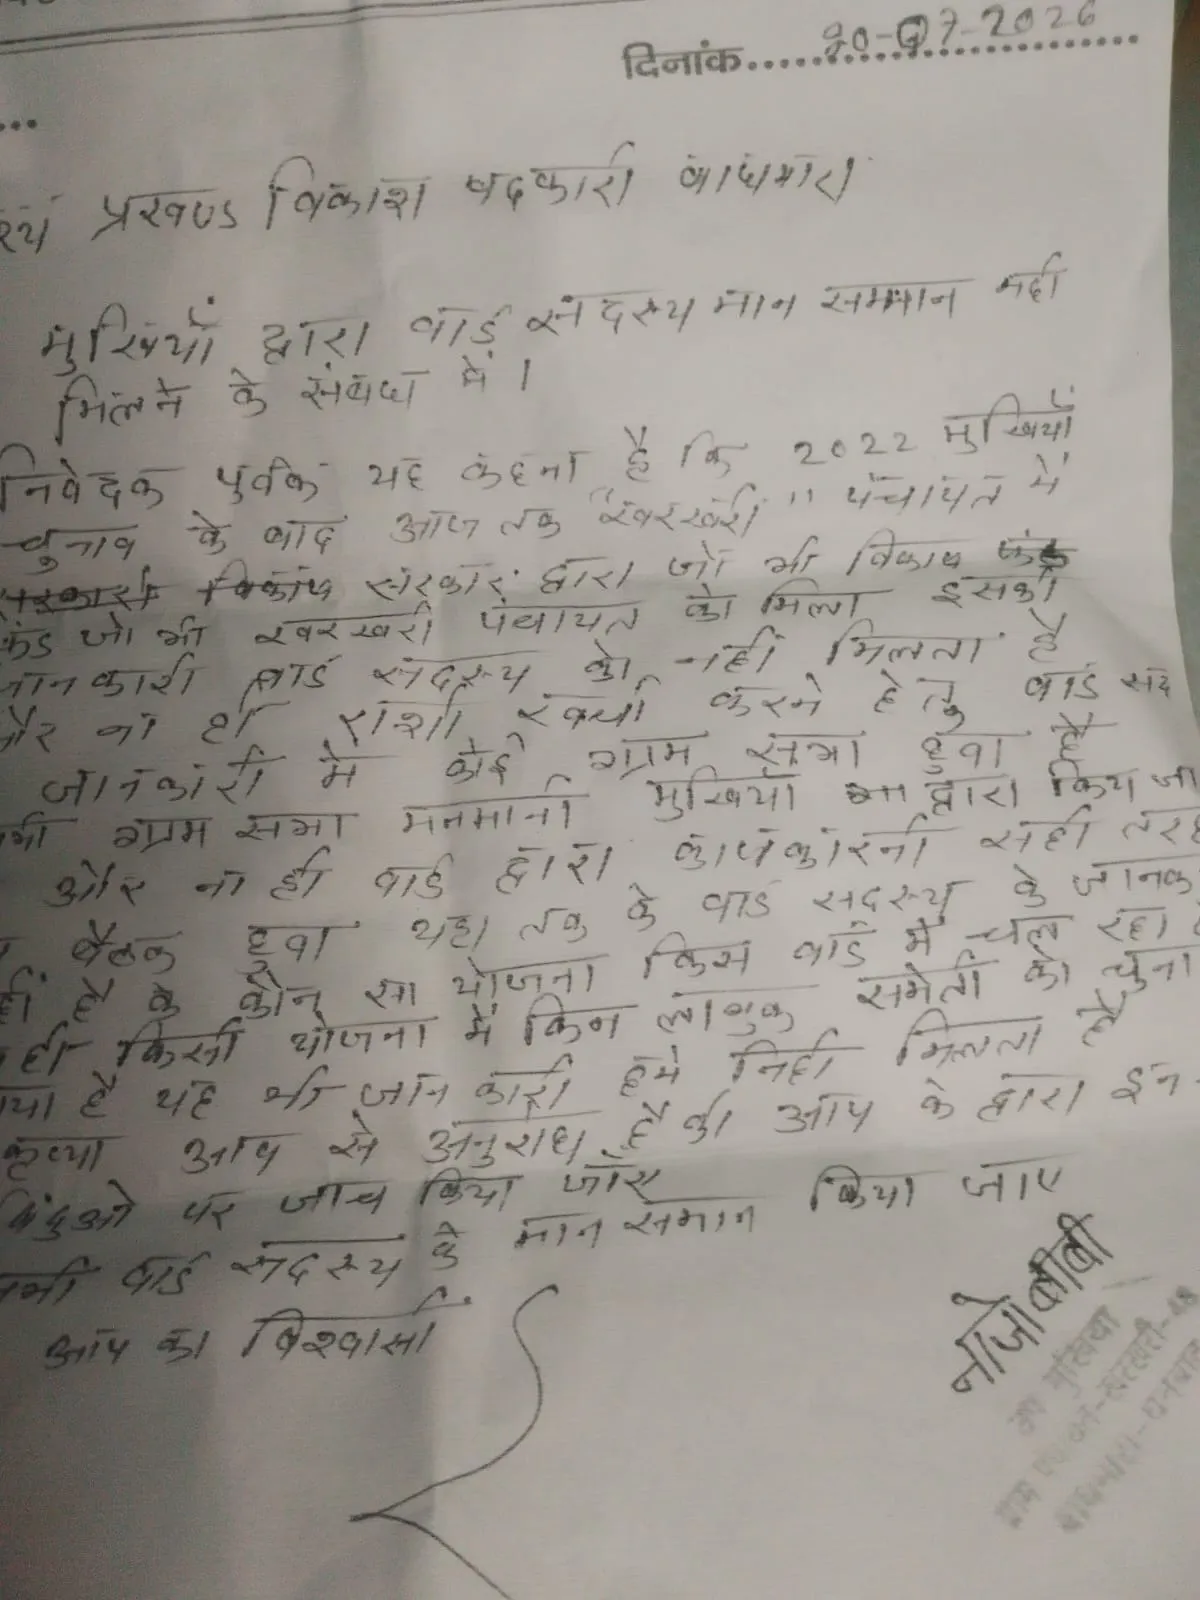 दिनांक 20-07-2026
प्रखण्ड विकाश पदकारी बाघमारा
मुखियाँ द्वारा वार्ड सदस्य मान सम्मान नही
मिलने के संबंध में ।
निवेदक पुर्वक यह कहना है कि 2022 मुखियाँ
चुनाव के बाद आज तक "खरखरी" पंचायत में
सरकार द्वारा जो भी विकाष
फंड जो भी खरखरी पंचायत को मिला इसकी
जानकारी वार्ड सदस्य को नहीं मिलता है
और ना ही राशी खर्चा करने हेतु वार्ड सद
जानकारी में कोई ग्राम सभा हुवा है
ग्राम सभा मनमानी मुखियाँ द्वारा किय जा
और ना ही वार्ड द्वारा कार्यकारनी सही तरह
बैठक हुवा यहा तक के वार्ड सदस्य के जानक
है के कौन सा योजना किस वार्ड में चल रहा
ही किसी योजना में किन लाभुक समेती को चुना
है यह भी जानकारी हमे निही मिलता है
कृप्या आप से अनुरोध है की आप के द्वारा इन
बिंदुओ पर जाच किया जाए
वार्ड सदस्य के मान समान किया जाए
आप का विश्वासी
नाजो बीबी
उप मुखिया
ग्राम पंचायत-खरखरी-48
बाघमारा-धनबाद